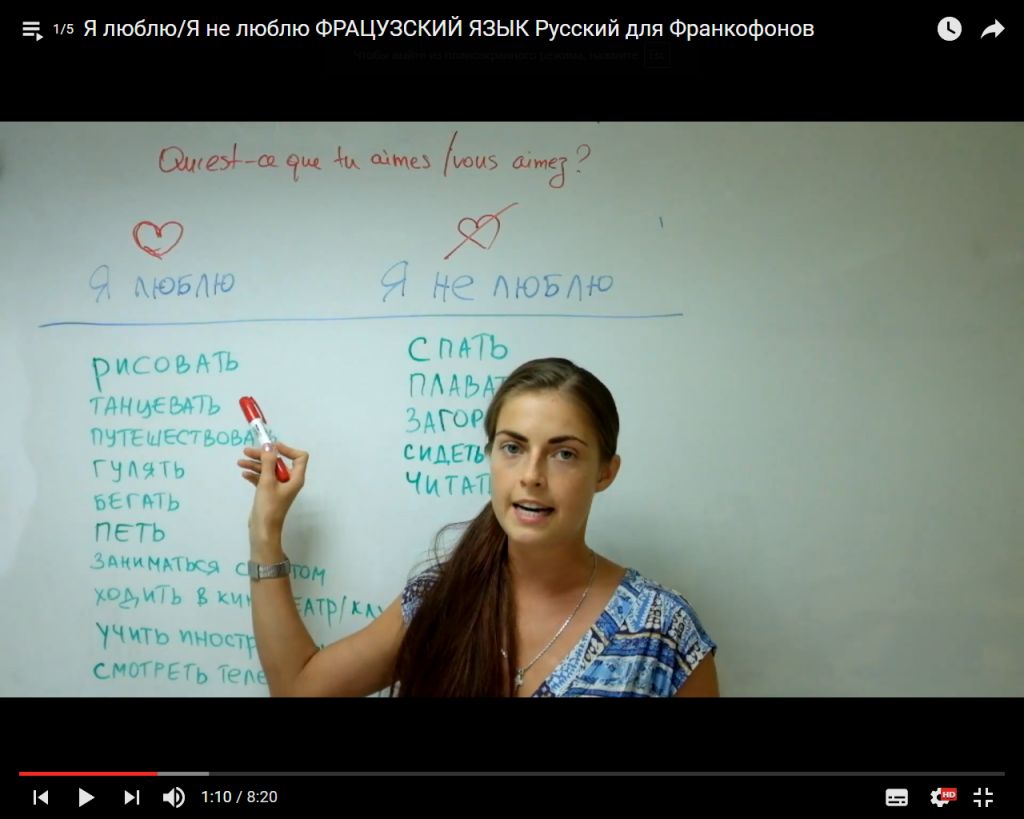 1/5 Я люблю/Я не люблю ФРАЦУЗСКИЙ ЯЗЫК Русский для Франкофонов
Чтобы выйти из полноэкранного режима, нажмите Esc
Qu'est-ce que tu aimes /vous aimez?
Я люблю
Я не люблю
РИСОВАТЬ
ТАНЦЕВАТЬ
ПУТЕШЕСТВОВА
ГУЛЯТЬ
БЕГАТЬ
ПЕТЬ
ЗАНИМАТЬСЯ С ТОМ
ХОДИТЬ В КИН ЕАТР/КЛУ
УЧИТЬ ИНОСТР
СМОТРЕТЬ ТЕЛЕ
СПАТЬ
ПЛАВАТ
ЗАГОР
СИДЕТЬ
ЧИТАТ
1:10 / 8:20
HD